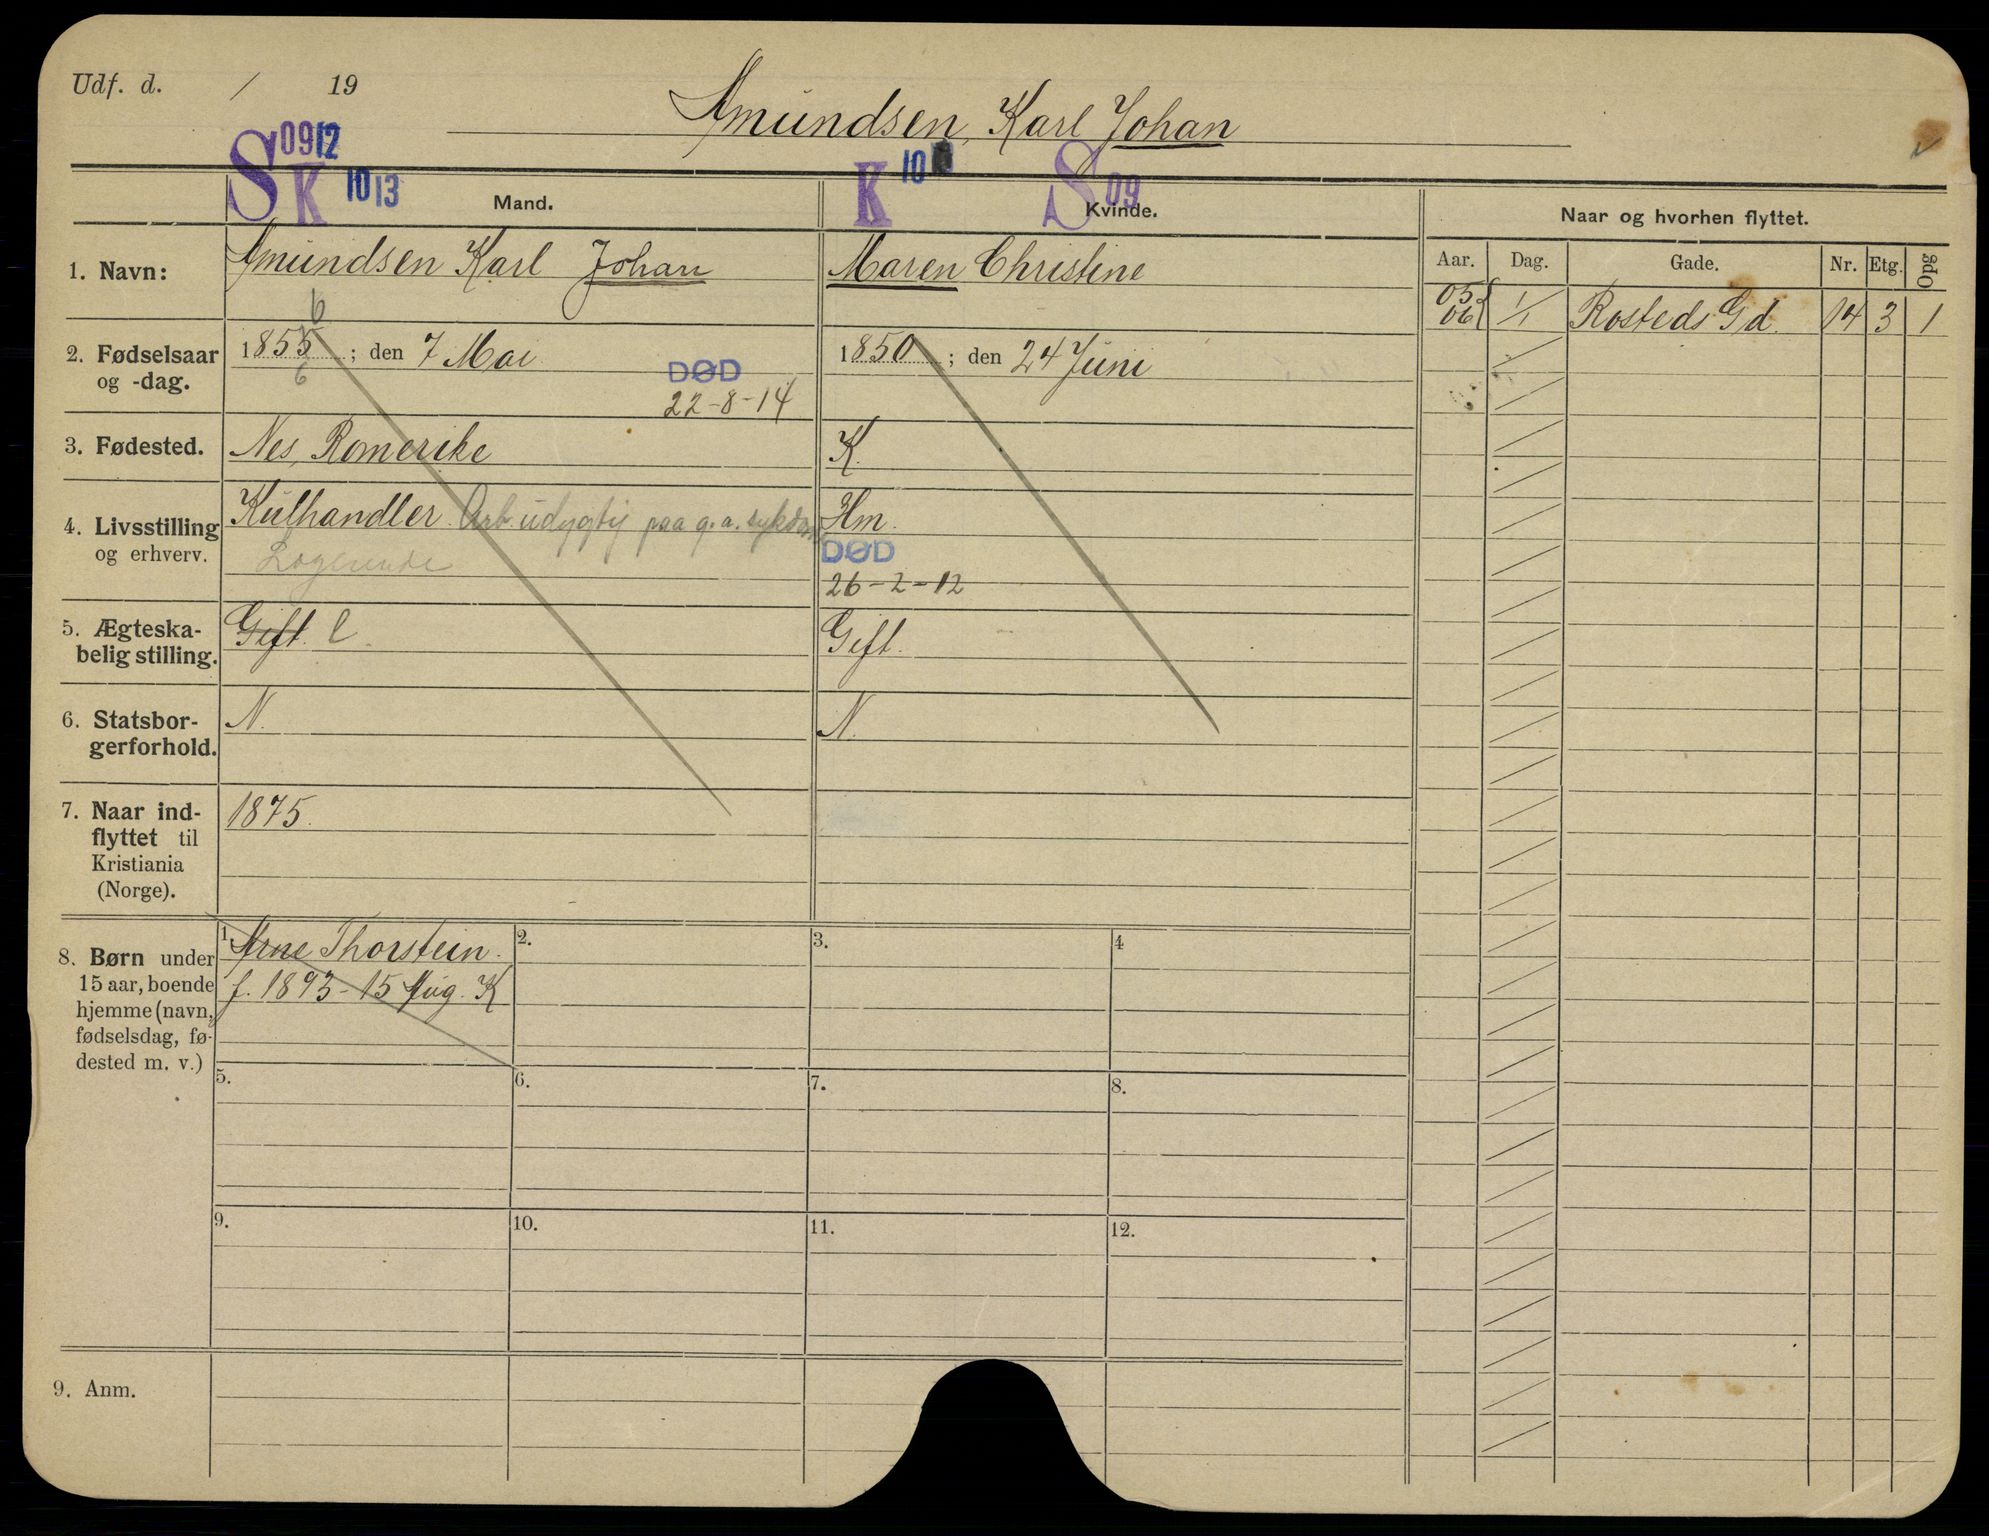 Udf. d. / 19
Amundsen, Karl Johan
S 09 12
K 10 13
K 10
S 09
A
Mand.
Kvinde.
Naar og hvorhen flyttet.
Aar. Dag. Gade. Nr. Etg. Opg
1. Navn:
Amundsen Karl Johan
Maren Christine
05
06 { 1/1 Rosteds Gd. 14 3 1
2. Fødselsaar
og -dag.
6
1855; den 7 Mai
6
DØD
22-8-14
1850; den 24 Juni
3. Fødested.
Nes, Romerike
K.
4. Livsstilling
og erhverv.
Kulhandler. Arb. udygtig paa g. a. sykdom
Logerende
Hm.
DØD
26-2-12
5. Ægteska-
belig stilling.
Gift. E.
Gift.
6. Statsbor-
gerforhold.
N.
N.
7. Naar ind-
flyttet til
Kristiania
(Norge).
1875.
8. Børn under
15 aar, boende
hjemme (navn,
fødselsdag, fø-
dested m. v.)
1. Arne Thorstein.
f. 1893-15 Aug. K
2.
3.
4
5.
6.
7.
8.
9.
10.
11.
12.
9. Anm.